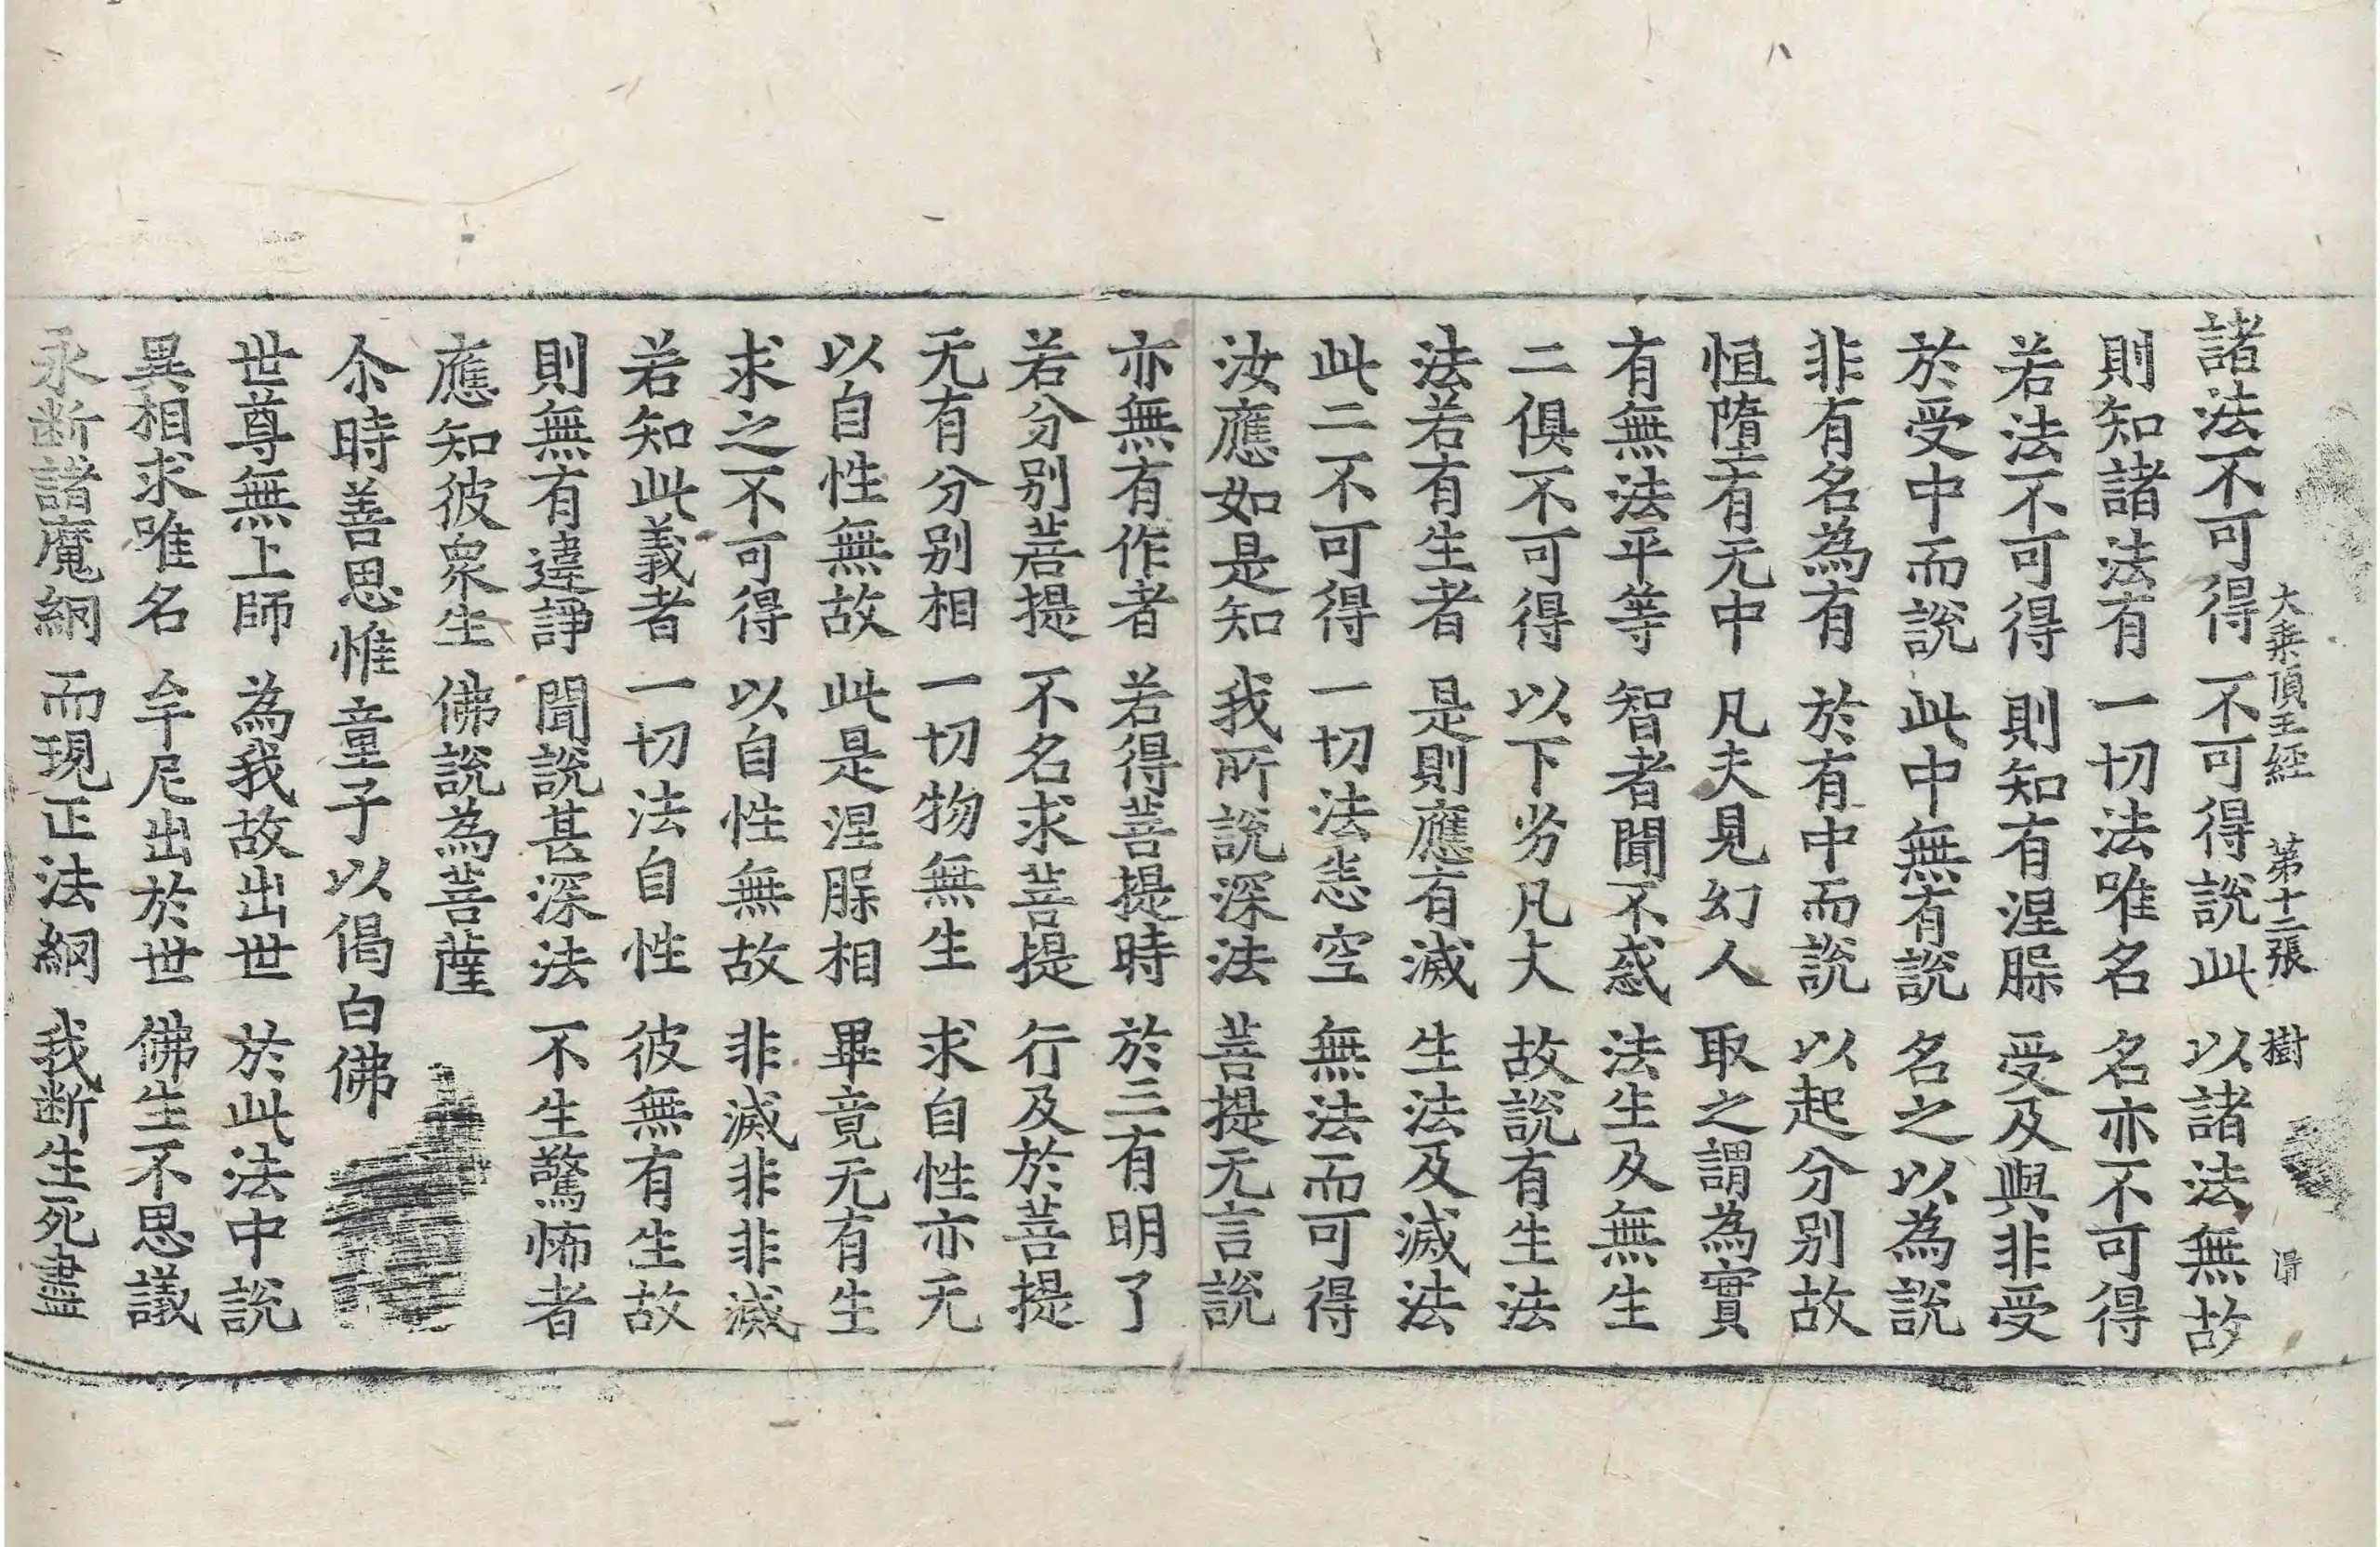 大乗頂王經 第十二張 樹
諸法不可得 不可得說此 以諸法無故
則知諸法有 一切法唯名 名亦不可得
若法不可得 則知有涅脲 受及與非受
於受中而說 此中無有說 名之以為說
非有名為有 於有中而說 以起分別故
恒墮有无中 凡夫見幻人 取之謂為實
有無法平等 智者聞不惑 法生及無生
二俱不可得 以下劣凡夫 故說有生法
法若有生者 是則應有滅 生法及滅法
此二不可得 一切法悉空 無法而可得
汝應如是知 我所說深法 菩提无言說
亦無有作者 若得菩提時 於三有明了
若分別菩提 不名求菩提 行及於菩提
无有分別相 一切物無生 求自性亦无
以自性無故 此是涅脲相 畢竟无有生
求之不可得 以自性無故 非滅非非滅
若知此義者 一切法自性 彼無有生故
則無有違諍 聞說甚深法 不生驚怖者
應知彼衆生 佛說為菩薩
尒時善思惟童子以偈白佛
世尊無上師 為我故出世 於此法中說
異相求唯名 牟尼出於世 佛生不思議
永断諸魔網 而現正法網 我断生死盡